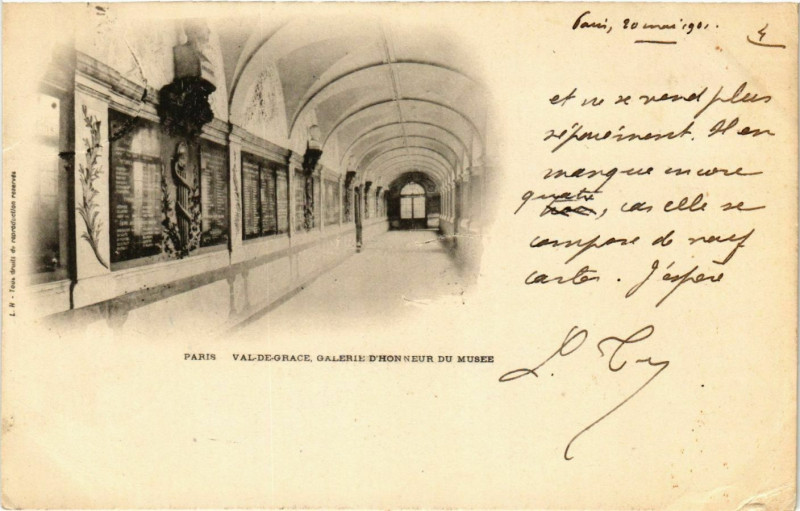 Paris, 20 mai 1901.
4
et ne se vend plus
séparément. Il en
manque encore
quatre, car elle se
compose de neuf
cartes. J'espère
PARIS VAL-DE-GRACE, GALERIE D'HONNEUR DU MUSEE
L. N - Tous droits de reproduction réservés